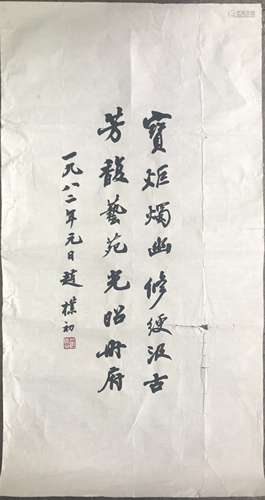 寶炬燭幽修綆汲古
芳馥藝苑光昭冊府
一九八二年元日趙樸初